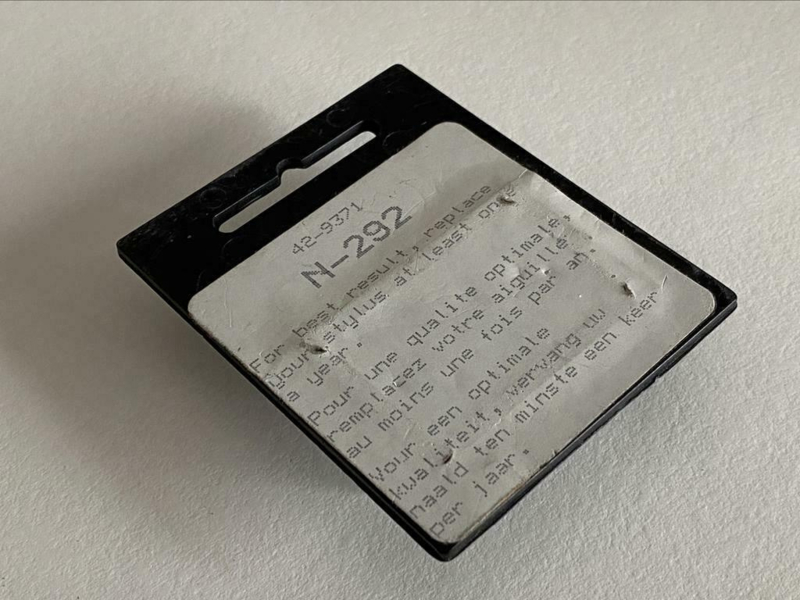 42-9371
N-292
For best result, replace
your stylus at least once
a year.
Pour une qualite optimale,
remplacez votre aiguille
au moins une fois par an.
Vour een optimale
kwaliteit, vervang uw
naald ten minste een keer
per jaar.